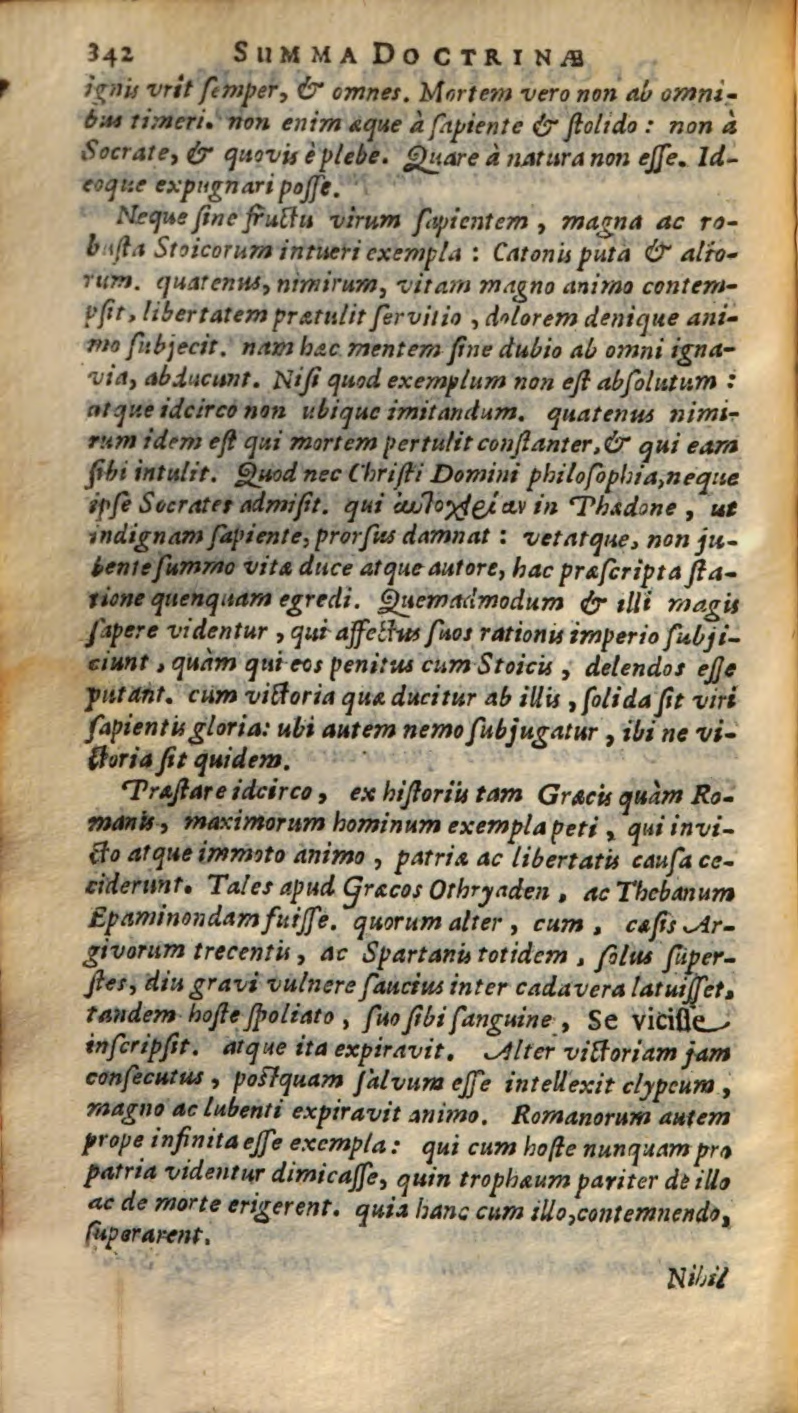 342 SUMMA DOCTRINÆ
ignis vrit ſemper, & omnes. Mortem vero non ab omni-
bus timeri. non enim æque à ſapiente & ſtolido : non à
Socrate, & quovis è plebe. Quare à natura non eſſe. Id-
eoque expugnari poſſe.
Neque ſine fructu virum ſapientem, magna ac ro-
buſta Stoicorum intueri exempla : Catonis puta & alio-
rum. quatenus, nimirum, vitam magno animo contem-
pſit, libertatem prætulit ſervitio, dolorem denique ani-
mo ſubjecit. nam hæc mentem ſine dubio ab omni igna-
via, abducunt. Niſi quod exemplum non eſt abſolutum :
atque idcirco non ubique imitandum. quatenus nimi-
rum idem eſt qui mortem pertulit conſtanter, & qui eam
ſibi intulit. Quod nec Chriſti Domini philoſophia, neque
ipſe Socrates admiſit. qui αὐτοχειρίαν in Phædone, ut
indignam ſapiente, prorſus damnat : vetatque, non ju-
bente ſummo vitæ duce atque autore, hac præſcripta ſta-
tione quenquam egredi. Quemadmodum & illi magis
ſapere videntur, qui affectus ſuos rationis imperio ſubji-
ciunt, quàm qui eos penitus cum Stoicis, delendos eſſe
putant. cùm victoria quæ ducitur ab illis, ſolida ſit viri
ſapientis gloria: ubi autem nemo ſubjugatur, ibi ne vi-
ctoria ſit quidem.
Præſtare idcirco, ex hiſtoriis tam Græcis quàm Ro-
manis, maximorum hominum exempla peti, qui invi-
cto atque immoto animo, patriæ ac libertatis cauſa ce-
ciderunt. Tales apud Græcos Othryaden, ac Thebanum
Epaminondam fuiſſe. quorum alter, cum, cæſis Ar-
givorum trecentis, ac Spartanis totidem, ſolus ſuper-
ſtes, diu gravi vulnere ſaucius inter cadavera latuiſſet,
tandem hoſte ſpoliato, ſuo ſibi ſanguine, Se viciſſe
inſcripſit. atque ita expiravit. Alter victoriam jam
conſecutus, poſtquam ſalvum eſſe intellexit clypeum,
magno ac lubenti expiravit animo. Romanorum autem
prope infinita eſſe exempla : qui cum hoſte nunquam pro
patria videntur dimicaſſe, quin trophæum pariter de illo
ac de morte erigerent. quia hanc cum illo, contemnendo,
ſuperarent.
Nihil